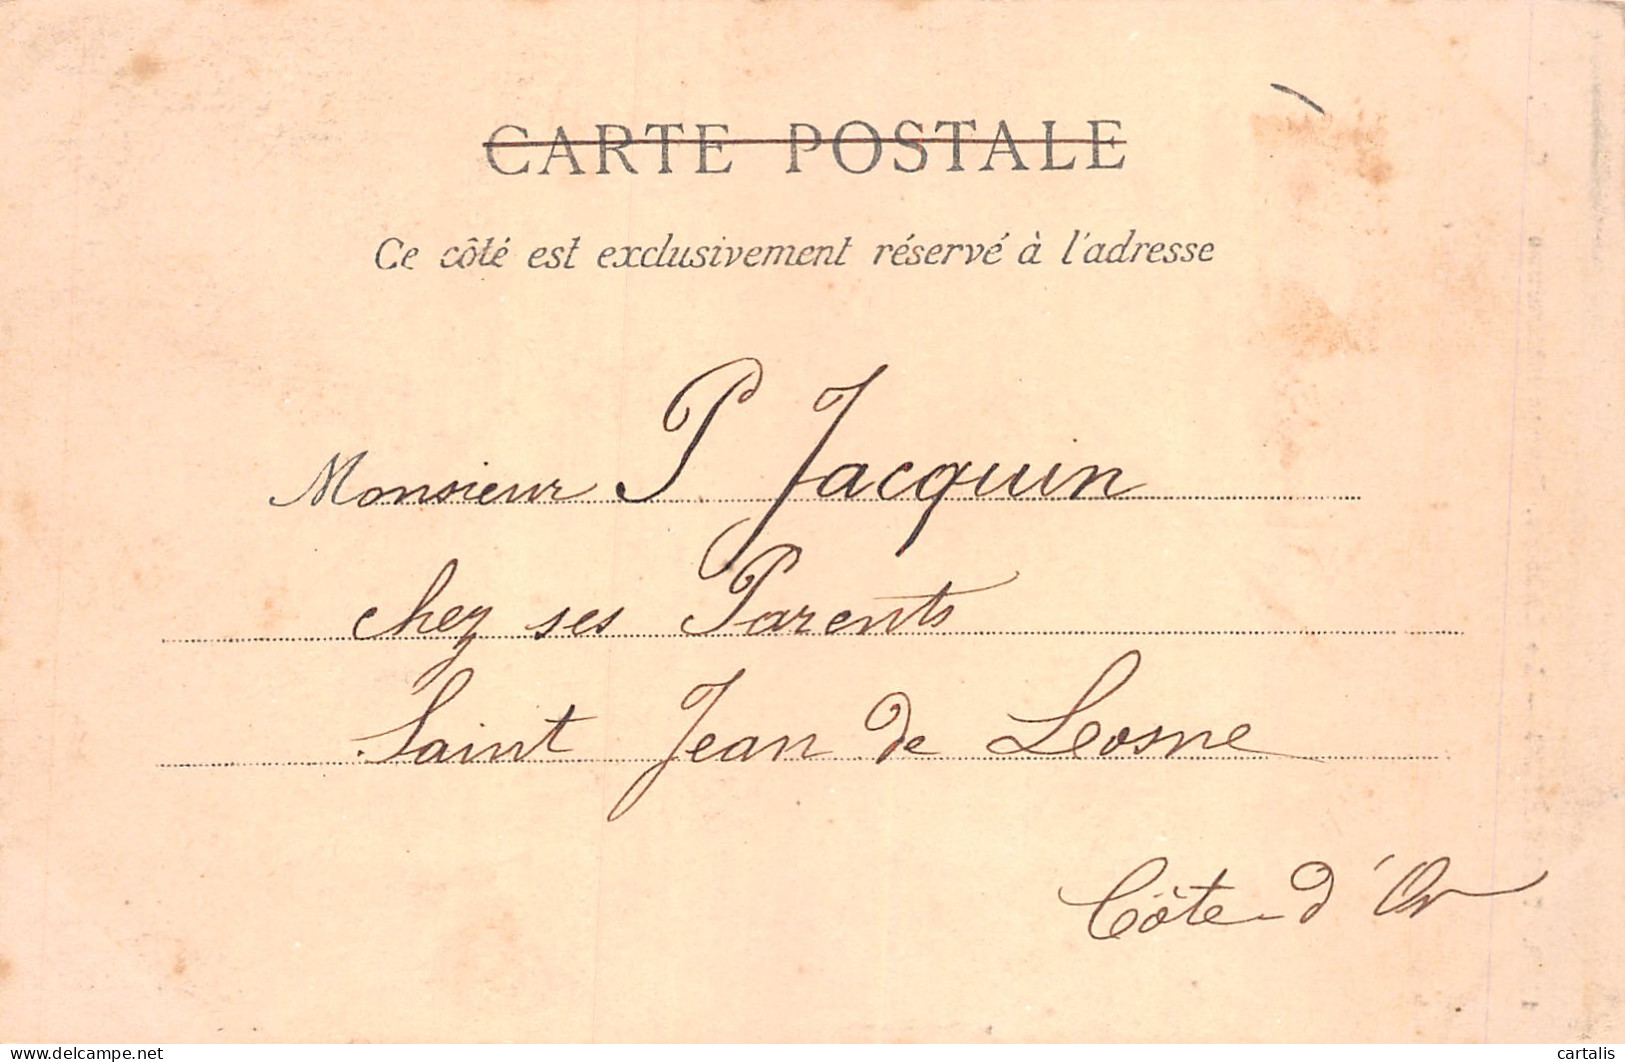 CARTE POSTALE
Ce côté est exclusivement réservé à l'adresse
Monsieur P. Jacquin
chez ses Parents
Saint Jean de Losne
Côte-d'Or
www.delcampe.net
cartalis